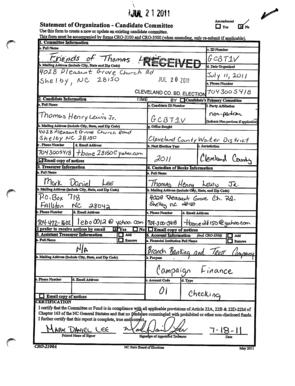 JUL 21 2011
Statement of Organization - Candidate Committee
Amendment
Use this form to create a new or update an existing candidate committee.
This form must be accompanied by forms CRO-3100 and CRO-3500 (when amending, only re-submit if applicable).
1. Committee Information
a. Full Name
c. ID Number
Friends of Thomas
GCBT1V
b. Mailing Address (include City, State and Zip Code)
d. Date Organized
4028 Pleasant Grove Church Rd
July 11, 2011
Shelby, NC 28150
RECEIVED
JUL 20 2011
e. Phone Number
704 300 5418
CLEVELAND CO. BD. ELECTION
TIME BY
2. Candidate Information
Candidate's Primary Committee
a. Full Name
e. Candidate ID Number
f. Party Affiliation
Thomas Henry Lewis Jr.
GCBT1V
non-partisan
b. Mailing Address (include City, State, and Zip Code)
g. Office Sought
4028 Pleasant Grove Church Road
Shelby NC 28150
Cleveland County Water District
c. Phone Number
d. Email Address
h. Next Election Year
i. Jurisdiction
704 300 5418
2011
Cleveland County
Email copy of notices
3. Treasurer Information
4. Custodian of Books Information
a. Full Name
a. Full Name
Mark Daniel Lee
Thomas Henry Lewis Jr.
b. Mailing Address (include City, State, and Zip Code)
b. Mailing Address (include City, State, and Zip Code)
P.O. Box 718
4028 Pleasant Grove Ch. Rd.
Fallston NC 28042
Shelby NC
c. Phone Number
d. Email Address
c. Phone Number
d. Email Address
I prefer to receive notices by email
Yes
No
Email copy of notices
5. Assistant Treasurer Information
Add
Remove
6. Account Information
Add
Remove
a. Full Name
a. Financial Institution Full Name
N/A
Branch Banking and Trust Company
b. Mailing Address (include City, State, and Zip Code)
b. Purpose
Campaign Finance
c. Phone Number
d. Email Address
c. Account Code
d. Type
01
Checking
Email copy of notices
CERTIFICATION
I certify that the Committee or Fund is in compliance with all applicable provisions of Article 22A, 22B & 22D-22M of
Chapter 163 of the NC General Statutes and that no funds are commingled with prohibited or other non-disclosed funds.
I further certify that this report is complete, true and correct.
MARK DANIEL LEE
7-18-11
Printed Name of Signer
Signature of Appointed Treasurer
Date
CRO-2100A
NC State Board of Elections
May 2011